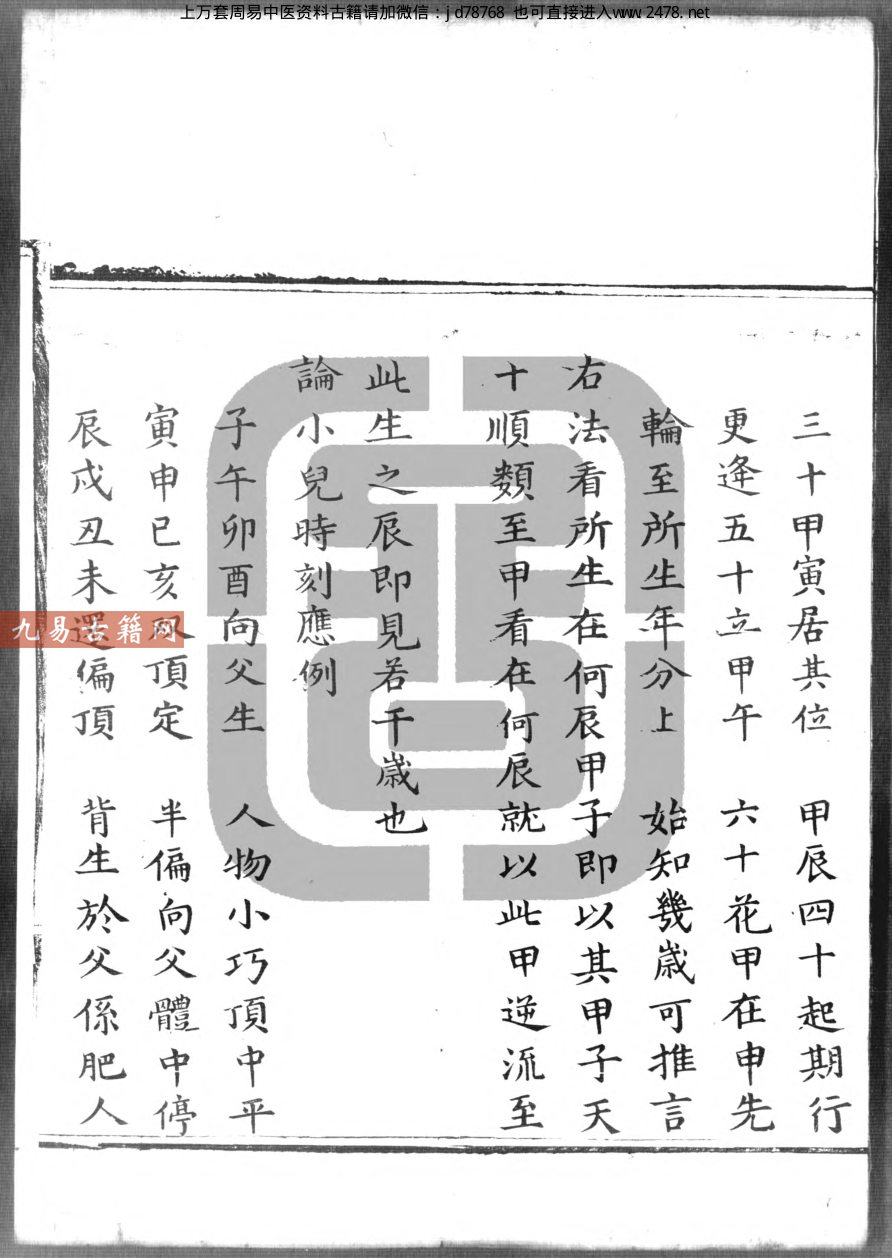 上万套周易中医资料古籍请加微信：jd78768 也可直接进入www.2478.net
三十甲寅居其位 甲辰四十起期行
更逄五十立甲午 六十花甲在申先
輪至所生年分上 始知幾歲可推言
右法看所生在何辰甲子即以其甲子天
十順類至甲看在何辰就以此甲逆流至
此生之辰即見若干歲也
論小兒時刻應例
子午卯酉向父生 人物小巧頂中平
寅申巳亥 頂定 半偏向父體中停
辰戍丑未還偏頂 背生於父係肥人
九易古籍网